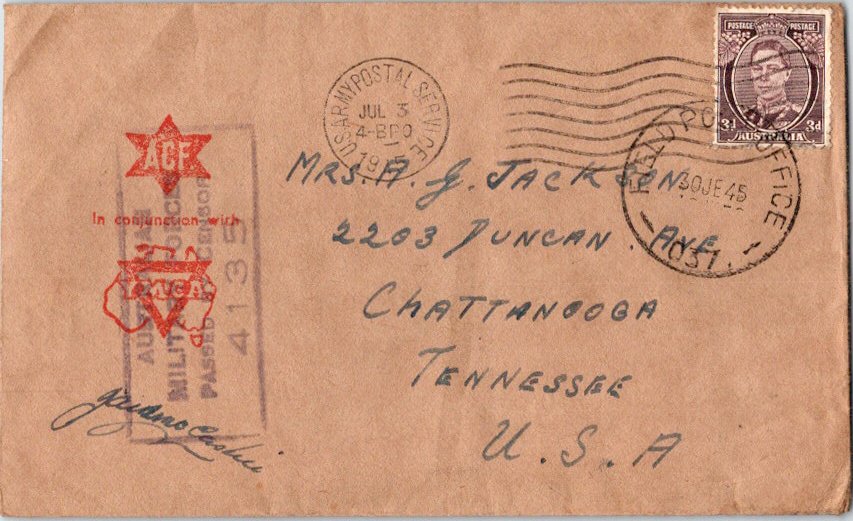 POSTAGE POSTAGE
3d 3d
AUSTRALIA
U.S. ARMY POSTAL SERVICE
JUL 3
4-BPO
FIELD POST OFFICE
30 JE 45
037
ACF
In conjunction with
YMCA
AUSTRALIAN
MILITARY FORCES
PASSED BY CENSOR
4135
MRS. A. J. JACKSON
2203 DUNCAN. AVE
CHATTANOOGA
TENNESSEE
U. S. A